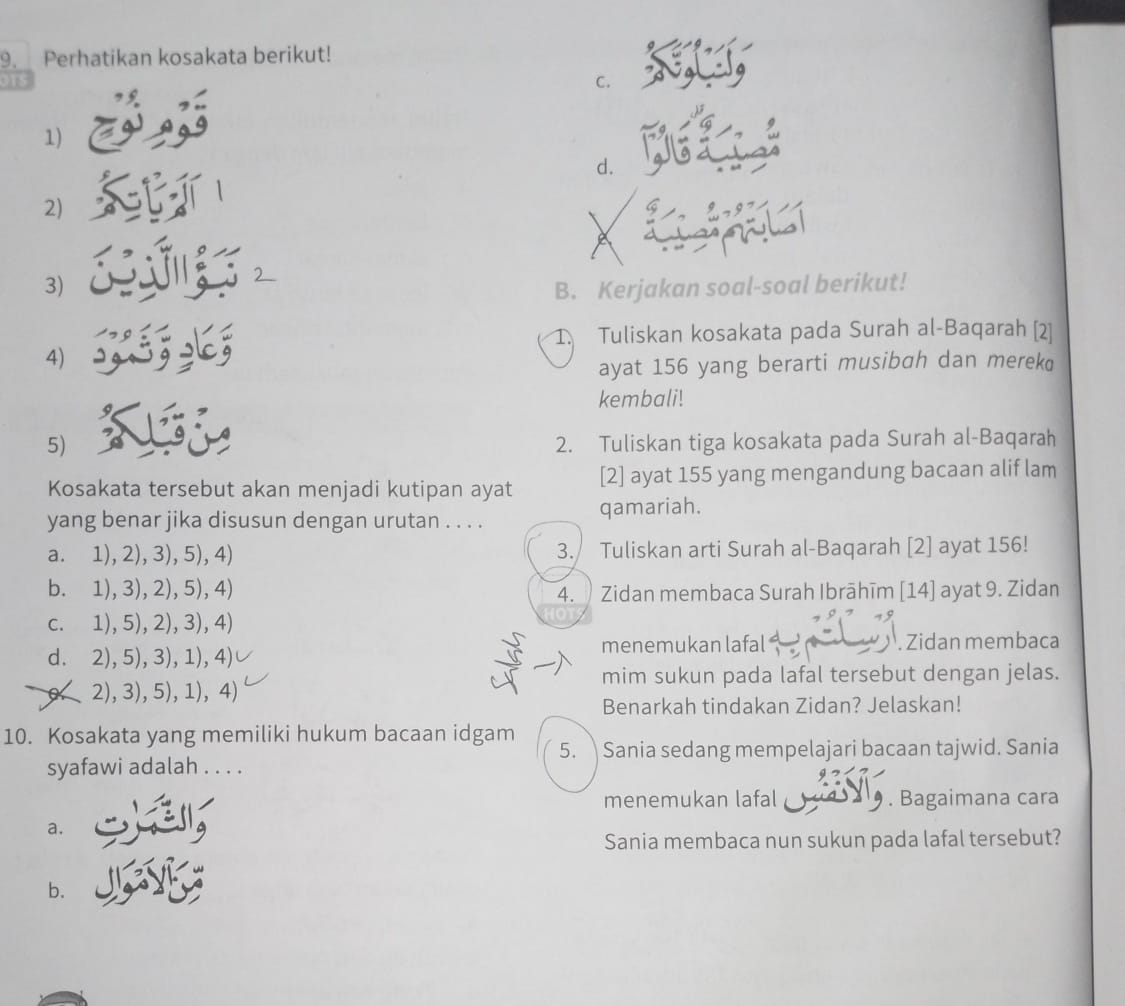 9. Perhatikan kosakata berikut!
OTS
1) قَوْمِ نُوْحٍ
2) اَلَمْ يَأْتِكُمْ 1
3) نَبَؤُا الَّذِيْنَ 2
4) وَّعَادٍ وَّثَمُوْدَ
5) مِنْ قَبْلِكُمْ
Kosakata tersebut akan menjadi kutipan ayat
yang benar jika disusun dengan urutan . . . .
a. 1), 2), 3), 5), 4)
b. 1), 3), 2), 5), 4)
c. 1), 5), 2), 3), 4)
d. 2), 5), 3), 1), 4)
2), 3), 5), 1), 4)
10. Kosakata yang memiliki hukum bacaan idgam
syafawi adalah . . . .
a. وَالثَّمَرٰتِ
b. مِّنَ الْاَمْوَالِ
c. وَلَنَبْلُوَنَّكُمْ
d. مُّصِيْبَةٌ ۙ قَالُوْٓا
اَصَابَتْهُمْ مُّصِيْبَةٌ
B. Kerjakan soal-soal berikut!
1. Tuliskan kosakata pada Surah al-Baqarah [2]
ayat 156 yang berarti musibah dan mereka
kembali!
2. Tuliskan tiga kosakata pada Surah al-Baqarah
[2] ayat 155 yang mengandung bacaan alif lam
qamariah.
3. Tuliskan arti Surah al-Baqarah [2] ayat 156!
4. Zidan membaca Surah Ibrāhīm [14] ayat 9. Zidan
HOTS
menemukan lafal اُرْسِلْتُمْ بِهٖ. Zidan membaca
Salah →
mim sukun pada lafal tersebut dengan jelas.
Benarkah tindakan Zidan? Jelaskan!
5. Sania sedang mempelajari bacaan tajwid. Sania
menemukan lafal وَالْاَنْفُسِ. Bagaimana cara
Sania membaca nun sukun pada lafal tersebut?